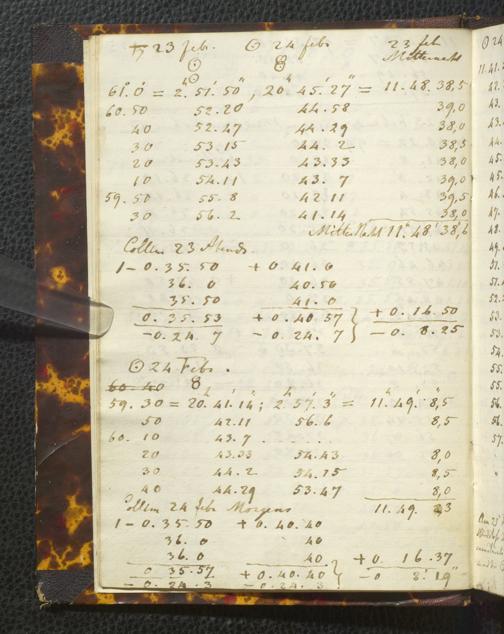 ♄ 23 feb. ☉ 24 febr 23 feb
☉ 8 Mitternacht
61°.0' = 2h.51'.50", 20h 45'.27" = 11.48.38,5
60.50 52.20 44.58 39,0
40 52.47 44.29 38,0
30 53.15 44.2 38,5
20 53.43 43.33 38,0
10 54.11 43.7 39,0
59.50 55.8 42.11 39,5
30 56.2 41.14 38,0
Mitternacht 11.48.38,6
Collim 23 Abends.
1 - 0.35.50 + 0.41.0
36.0 40.50
35.50 41.0
0.35.53 + 0.40.57 } + 0.16.50
-0.24.7 - 0.24.7 } - 0.8.25
☉ 24 Febr.
60.40 8
59.30 = 20h.41'.14"; 2h.57'.3" = 11h.49'.8,5
50 42.11 56.6 8,5
60.10 43.7 . . . .
20 43.33 54.43 8,0
30 44.2 54.15 8,5
40 44.29 53.47 8,0
Collim 24 febr Morgens 11.49.
1 - 0.35.50 + 0.40.40
36.0 40
36.0 40 + 0.16.37
0 35.57 + 0.40.40 } - 0 8.19"
- 0.24.3 - 0.24.3